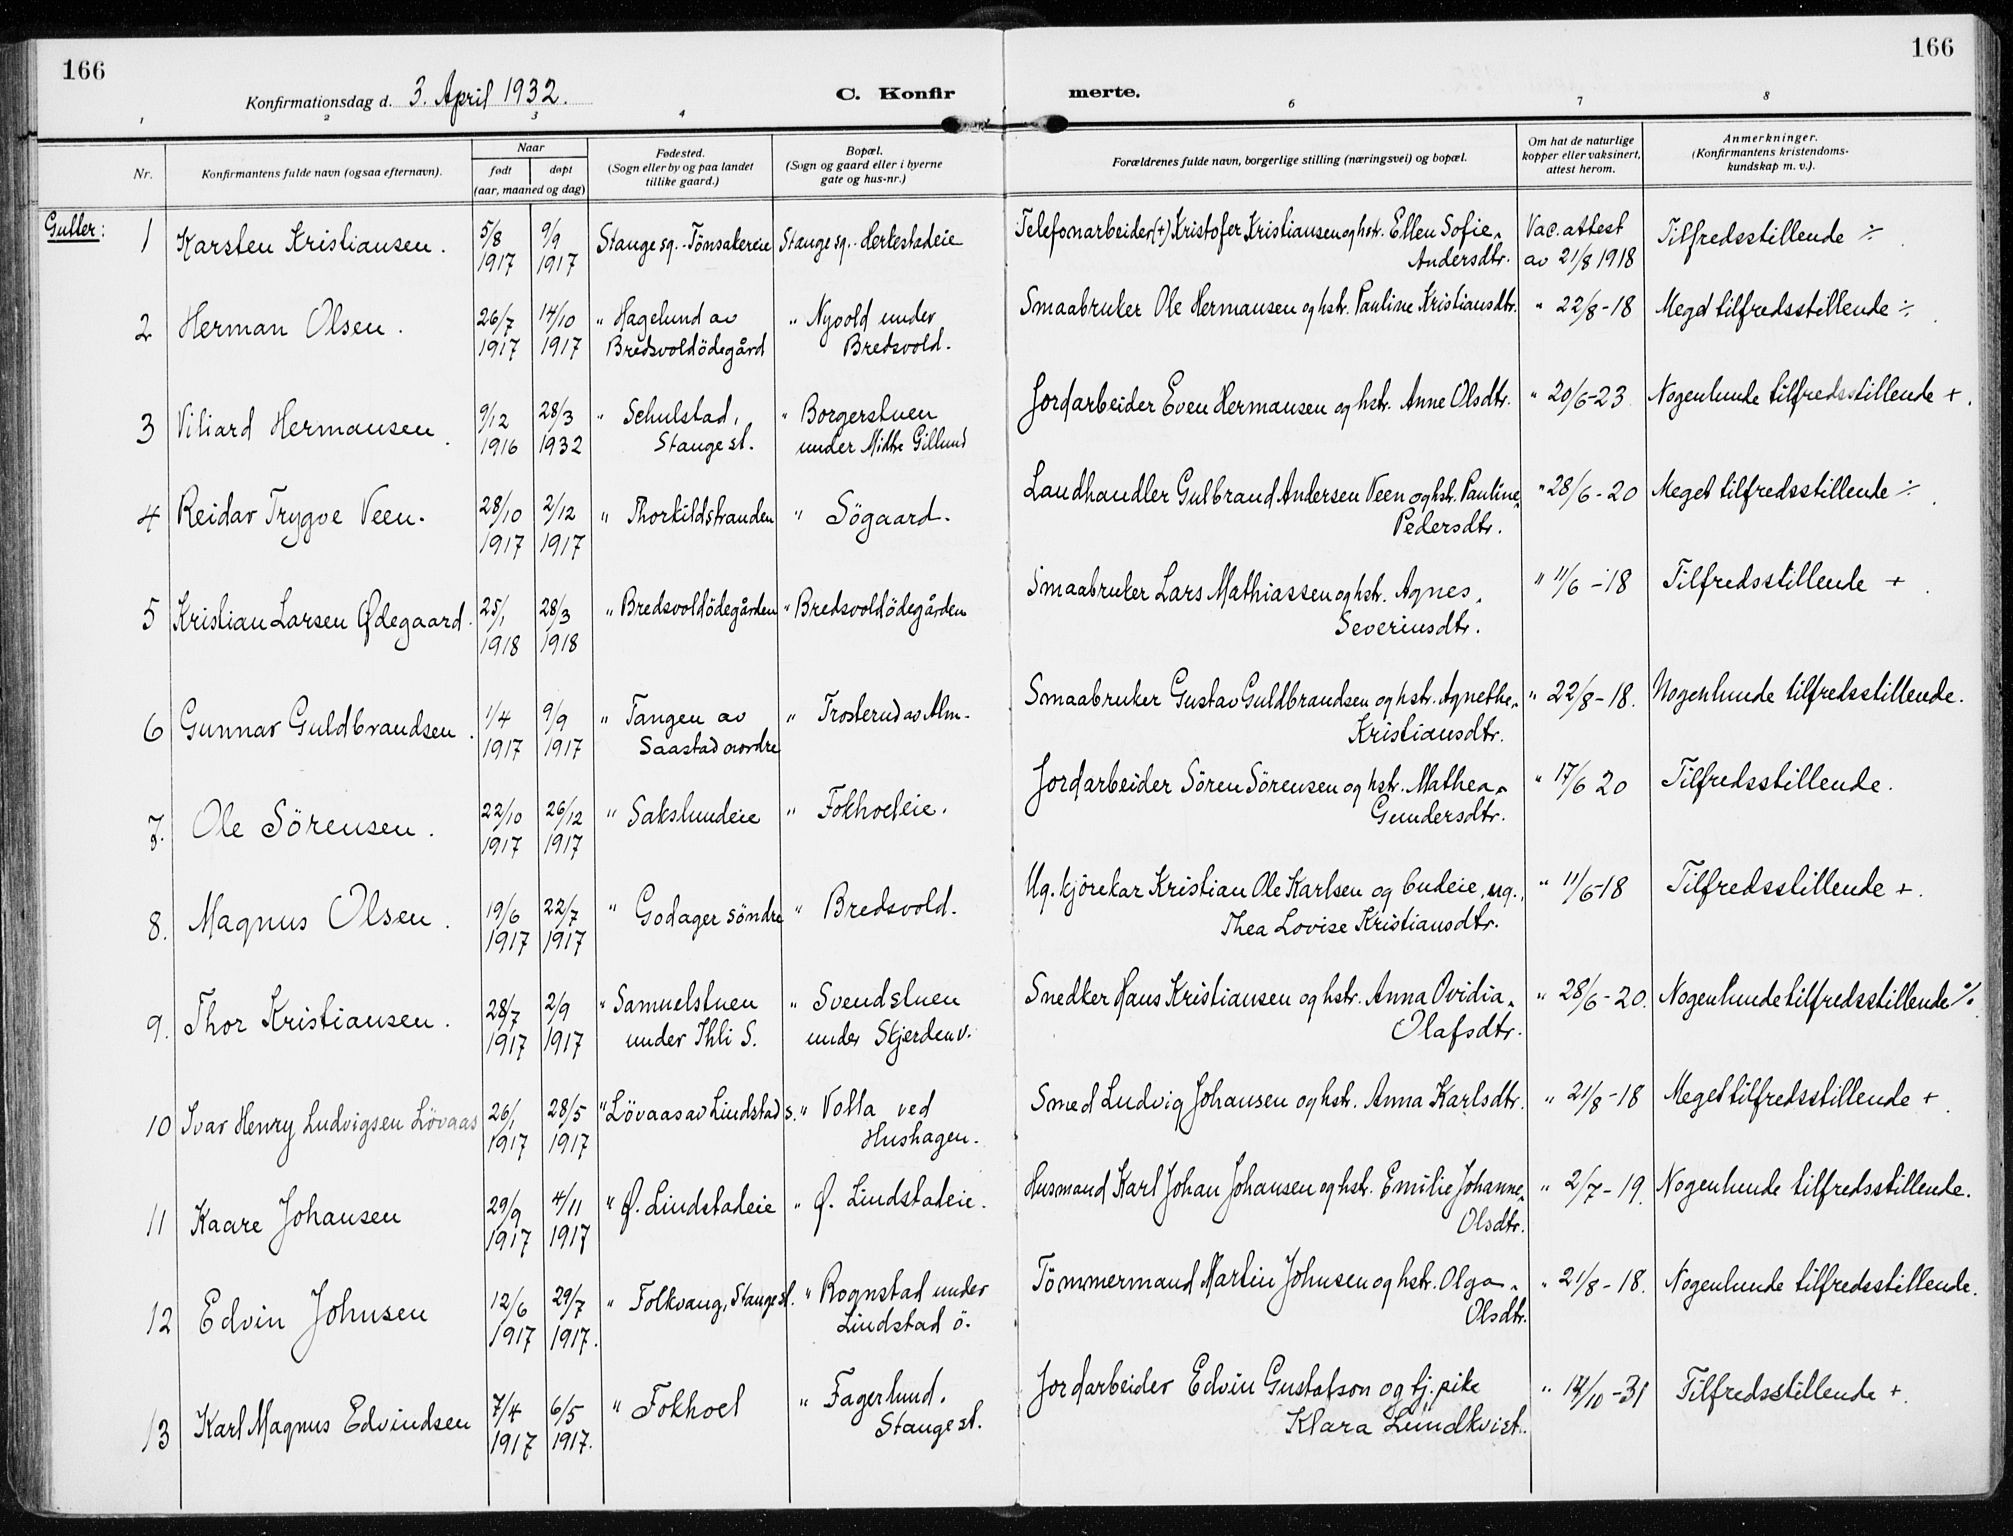 166
166
Konfirmationsdag d. 3. April 1932.
C. Konfir
merte.
1 2 3 4 6 7 8
Nr.
Konfirmantens fulde navn (ogsaa efternavn).
Naar
født
døpt
(aar, maaned og dag)
Fødested.
(Sogn eller by og paa landet
tillike gaard.)
Bopæl.
(Sogn og gaard eller i byerne
gate og hus-nr.)
Forældrenes fulde navn, borgerlige stilling (næringsvei) og bopæl.
Om hat de naturlige
kopper eller vaksinert,
attest herom.
Anmerkninger.
(Konfirmantens kristendoms-
kundskap m. v.).
Gutter:
1 Karsten Kristiansen. 5/8 1917 9/9 1917 Stange sg. - Tönsakereie Stange sg. - Hertestadeie Telefonarbeider (+) Kristofer Kristiansen og hstr. Ellen Sofie
Andersdtr. Vac. attest av 21/8 1918 Tilfredsstillende ÷
2 Herman Olsen. 26/7 1917 14/10 1917 " Hagelund av
Bredsvoldödegård " Nyvold under
Bredsvold. Smaabruker Ole Hermansen og hstr. Pauline Kristiansdtr. " 22/8-18 Meget tilfredsstillende ÷
3 Viliard Hermansen. 9/12 1916 28/3 1932 " Schulstad,
Stange st. " Borgerstuen
under Midtre Gillund Jordarbeider Even Hermansen og hstr. Anne Olsdtr. " 20/6-23 Nogenlunde tilfredsstillende +.
4 Reidar Trygve Veen. 28/10 1917 2/12 1917 " Thorkildstranden " Sögaard. Landhandler Gulbrand Andersen Veen og hstr. Pauline
Pedersdtr. " 28/6-20 Meget tilfredsstillende ÷
5 Kristian Larsen Ødegaard. 25/1 1918 28/3 1918 " Bredsvoldödegården " Bredsvoldödegården Smaabruker Lars Mathiassen og hstr. Agnes
Severinsdtr. " 11/6-18 Tilfredsstillende +
6 Gunnar Guldbrandsen. 1/4 1917 9/9 1917 " Tangen av
Saastad nordre " Trosterud av Alm. Smaabruker Gustav Guldbrandsen og hstr. Agnethe
Kristiansdtr. " 22/8-18. Nogenlunde tilfredsstillende.
7. Ole Sörensen. 22/10 1917 26/12 1917 " Sakslundeie " Fokhoeleie. Jordarbeider Sören Sörensen og hstr. Mathea
Gundersdtr. " 17/6 20 Tilfredsstillende.
8. Magnus Olsen. 19/6 1917 22/7 1917 " Godager söndre " Bredsvold. Ug. kjörekar Kristian Ole Karlsen og budeie, ug.,
Thea Lovise Kristiansdtr. " 11/6-18 Tilfredsstillende +.
9. Thor Kristiansen. 28/7 1917 2/9 1917 " Samuelstuen
under Ihli S. " Svendstuen
under Skjerden v. Snedker Hans Kristiansen og hstr. Anna Ovidia
Olafsdtr. " 28/6-20. Nogenlunde tilfredsstillende ÷
10 Ivar Henry Ludvigsen Lövaas 26/1 1917 28/5 1917 " Lövaas av Lindstad s. " Volla ved
Hushagen. Smed Ludvig Johansen og hstr. Anna Karlsdtr. " 21/8-18 Meget tilfredsstillende +
11 Kaare Johansen 29/9 1917 4/11 1917 " Ø. Lindstadeie " Ø. Lindstadeie. Husmand Karl Johan Johansen og hstr. Emilie Johanne
Olsdtr. " 2/7-19. Nogenlunde tilfredsstillende.
12 Edvin Johnsen 12/6 1917 29/7 1917. " Folkvang, Stange st. " Rognstad under
Lindstad ö. Tömmermand Martin Johnsen og hstr. Olga
Olsdtr. " 21/8-18. Nogenlunde tilfredsstillende.
13 Karl Magnus Edvindsen 7/4 1917 6/5 1917. " Fokhoel " Fagerlund.
Stange st. Jordarbeider Edvin Gustafson og tj. pike
Klara Lundkvist. " /10-31 Tilfredsstillende +.